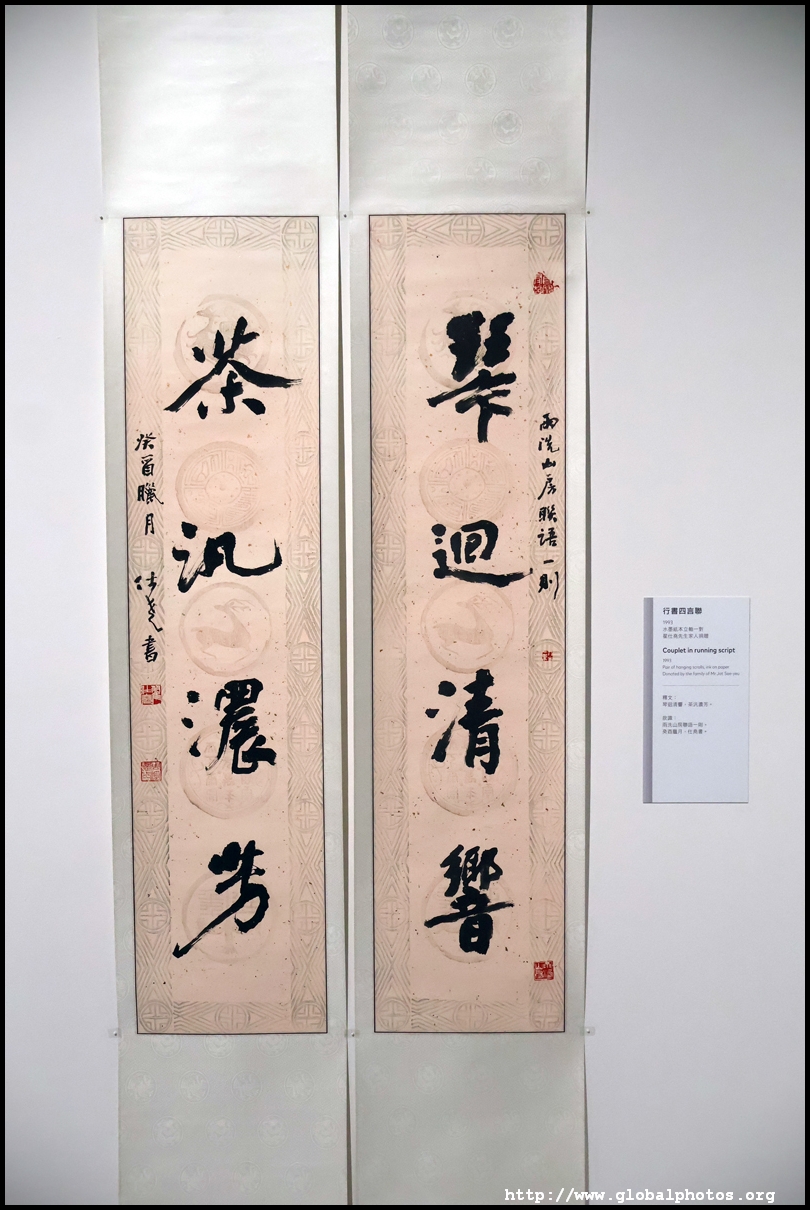 琴迴清響
雨洗山房聯語一則
茶汎濃芳
癸酉臘月 仕堯書
行書四言聯
1993
水墨紙本立軸一對
翟仕堯先生家人捐贈
Couplet in running script
1993
Pair of hanging scrolls, ink on paper
Donated by the family of Mr Jat See-yeu
釋文：
琴迴清響，茶汎濃芳。
款識：
雨洗山房聯語一則。
癸酉臘月，仕堯書。
http://www.globalphotos.org